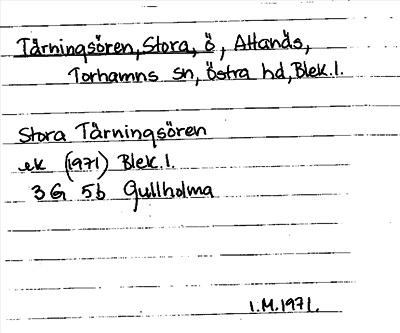 Tärningsören, Stora, ö, Attanäs,
Torhamns sn, östra hd, Blek.l.
Stora Tärningsören
ek (1971) Blek.l.
3G 5b Gullholma
I.M.1971.